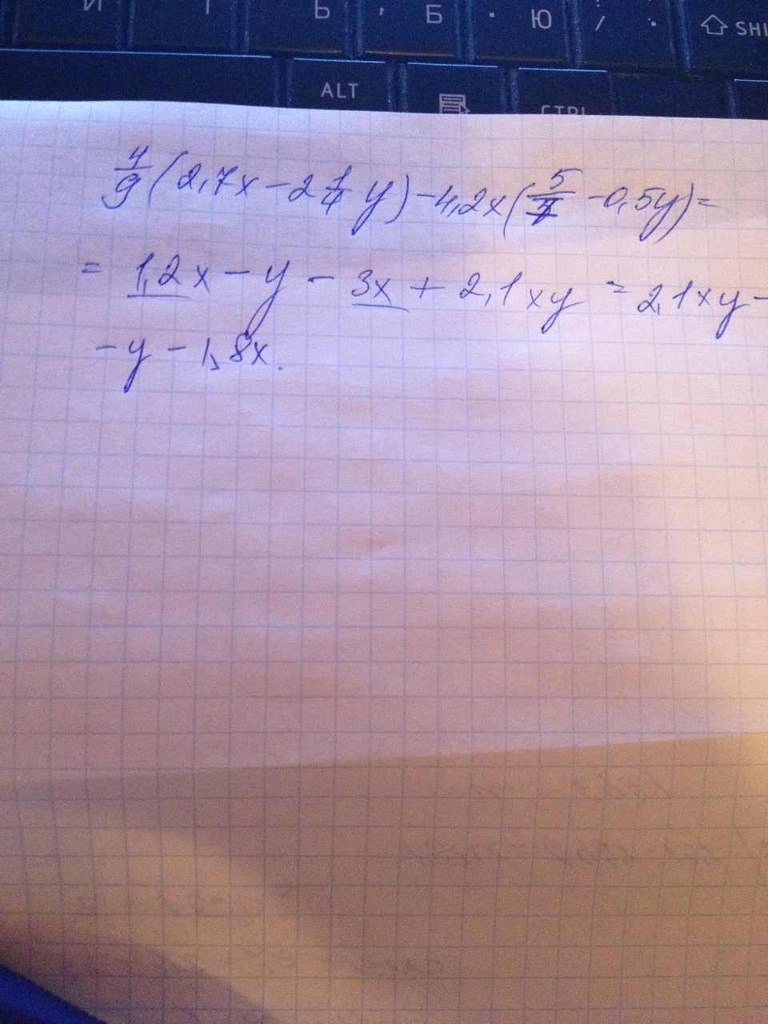 И Т Ь , Б . Ю / . SHI
ALT CTRL
4/9 (2,7x - 2 1/4 y) - 4,2x (5/7 - 0,5y) =
= 1,2x - y - 3x + 2,1xy = 2,1xy -
- y - 1,8x.